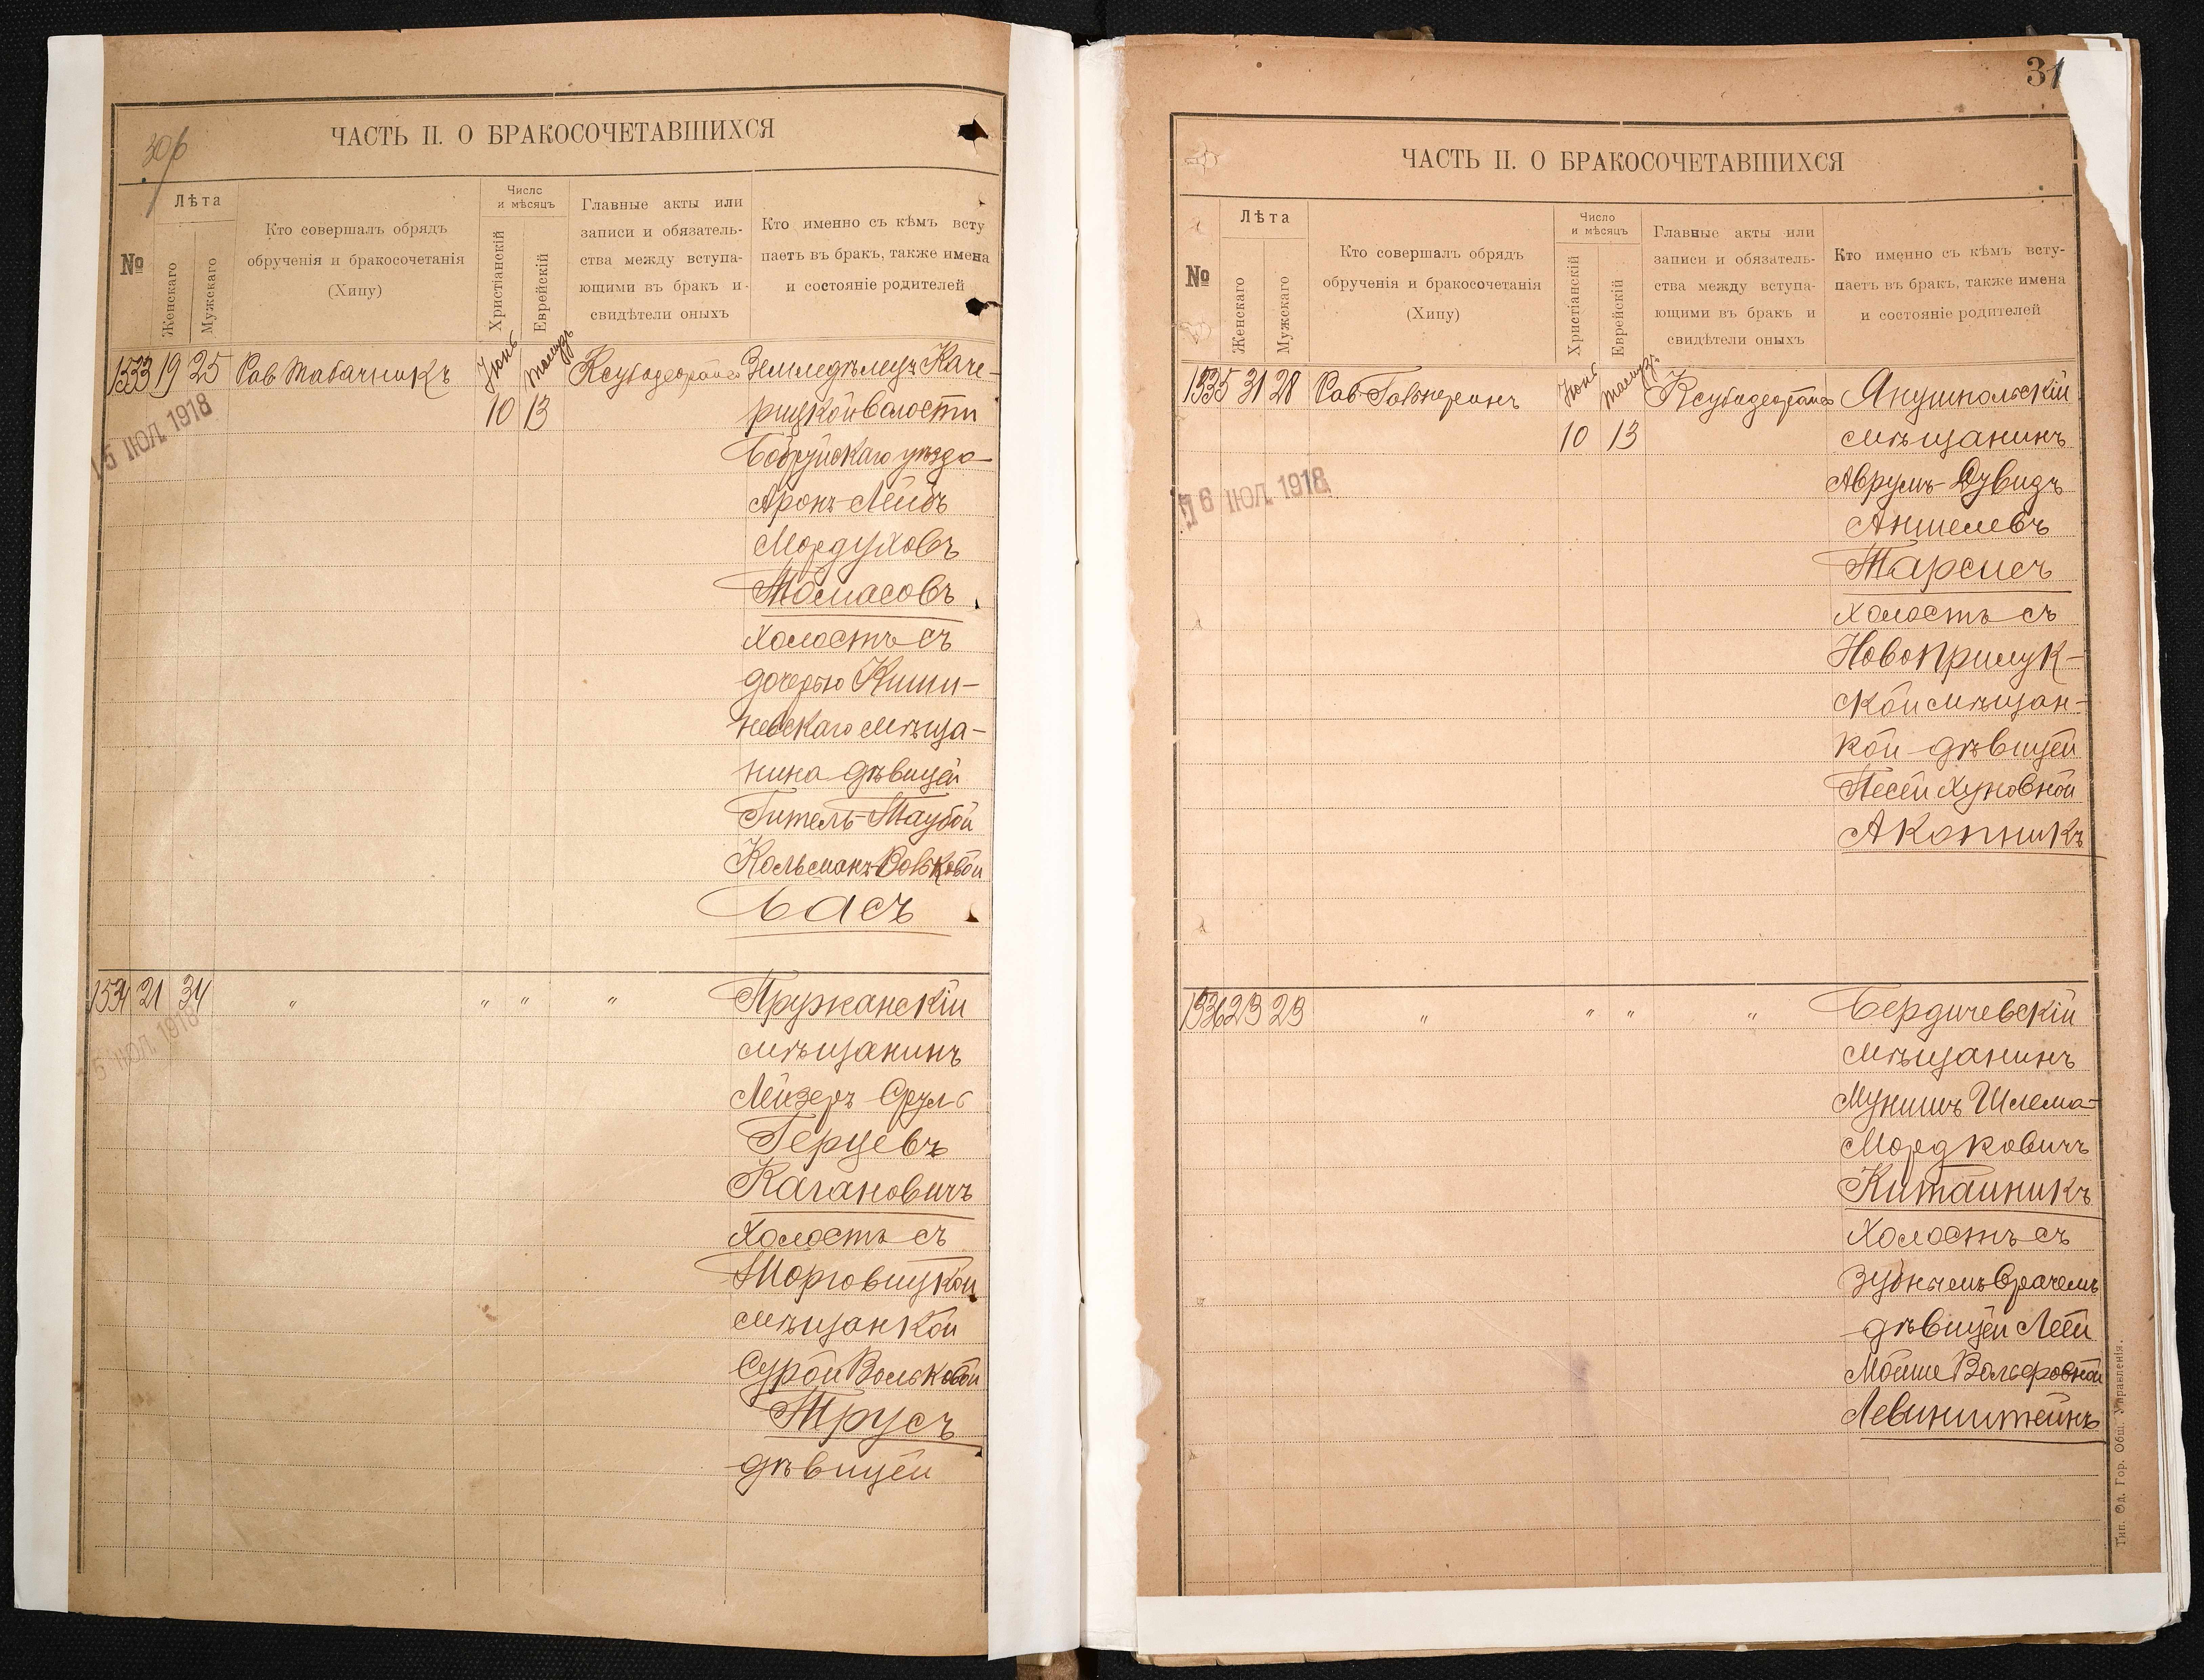 30б
ЧАСТЬ II. О БРАКОСОЧЕТАВШИХСЯ
№
Лѣта
Женскаго
Мужскаго
Кто совершалъ обрядъ
обрученія и бракосочетанія
(Хипу)
Число
и мѣсяцъ
Христіанскій
Еврейскій
Главные акты или
записи и обязатель-
ства между вступа-
ющими въ бракъ и
свидѣтели оныхъ
Кто именно съ кѣмъ всту
паетъ въ бракъ, также имена
и состояніе родителей
1533 19 25 Рав Табачникъ Іюнь 10 Тамузъ 13 Ксубадеорайса Земледѣлецъ Каче-
рицкой волости
Бобруйскаго уѣзда
Аронъ-Лейбъ
Мордуховъ
Томасовъ
холостъ съ
дочерью Киши-
невскаго мѣща-
нина дѣвицей
Гитель-Таубой
Кальманъ-Вольковой
Басъ
15 ІЮЛ. 1918
1534 21 34 " " " " Пружанскій
мѣщанинъ
Лейзеръ Сруль
Герцевъ
Кагановичъ
холостъ съ
Торговицкой
мѣщанкой
Сурой Вольковой
Трусъ
дѣвицей
5 ІЮЛ. 1918
31
ЧАСТЬ II. О БРАКОСОЧЕТАВШИХСЯ
№
Лѣта
Женскаго
Мужскаго
Кто совершалъ обрядъ
обрученія и бракосочетанія
(Хипу)
Число
и мѣсяцъ
Христіанскій
Еврейскій
Главные акты или
записи и обязатель-
ства между вступа-
ющими въ бракъ и
свидѣтели оныхъ
Кто именно съ кѣмъ всту-
паетъ въ бракъ, также имена
и состояніе родителей
1535 31 28 Рав Гальперинъ Іюнь 10 Тамузъ 13 Ксубадеорайса Янушпольскій
мѣщанинъ
Аврумъ-Дувидъ
Аншелевъ
Тарсисъ
холостъ съ
Новоприлук-
ской мѣщан-
кой дѣвицей
Песей Хуновной
Акопникъ
6 ІЮЛ. 1918
1536 23 23 " " " " Бердичевскій
мѣщанинъ
Мунишъ Шлема-
Мордковичъ
Китайникъ
холостъ съ
зубнымъ врачемъ
дѣвицей Леей
Мойше Вольфовной
Левинштейнъ
Тип. Од. Гор. Общ. Управленія.